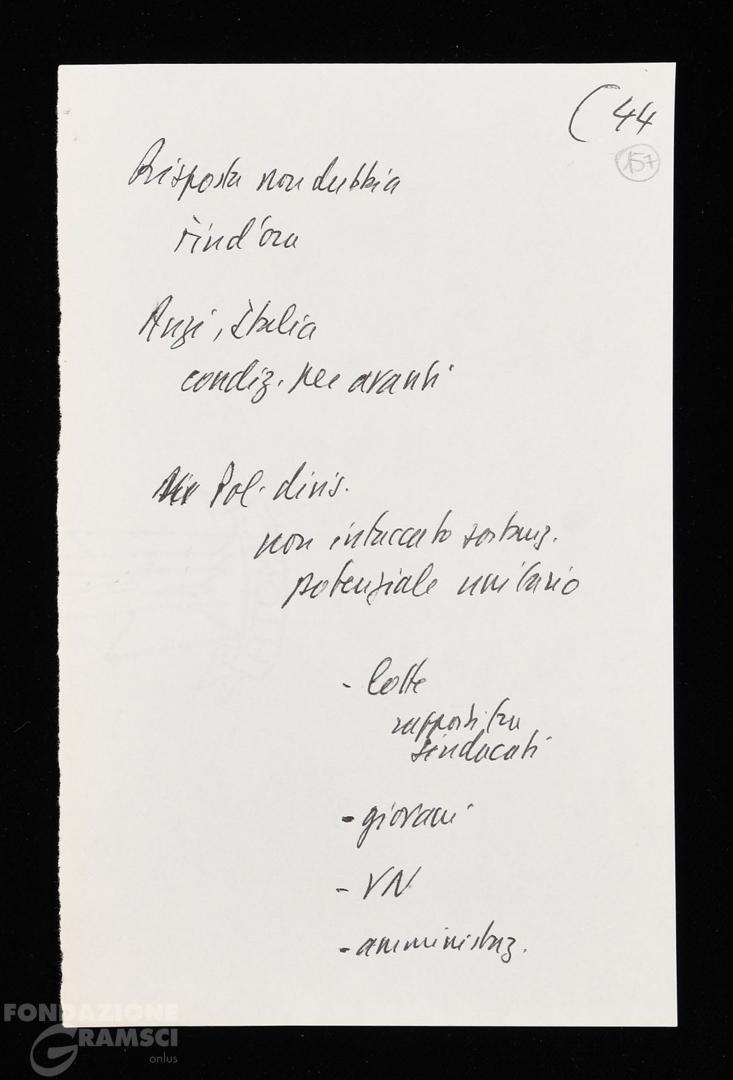 (44
157
Risposta non dubbia
sin d'ora
Anzi, Italia
condiz. per avanti
Pol. divis.
non intaccato sostanz.
potenziale unitario
- lotte
rapporti tra
sindacati
- giovani
- VN
- amministraz.
FONDAZIONE
GRAMSCI
onlus